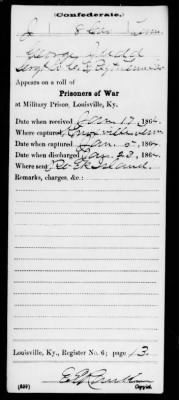 (Confederate.)
J 8 Cav Tenn
George Judd
Sergt Co. G, 8 Regt Tenn Cav
Appears on a roll of
Prisoners of War
at Military Prison, Louisville, Ky.
Date when received Jan 17, 1864.
Where captured Knoxville Tenn
Date when captured Jan 5, 1864
Date when discharged Jan 23, 1864.
Where sent Rock Island.
Remarks, charges, &c.:
Louisville, Ky., Register No. 6; page 13
(639)
Copyist.